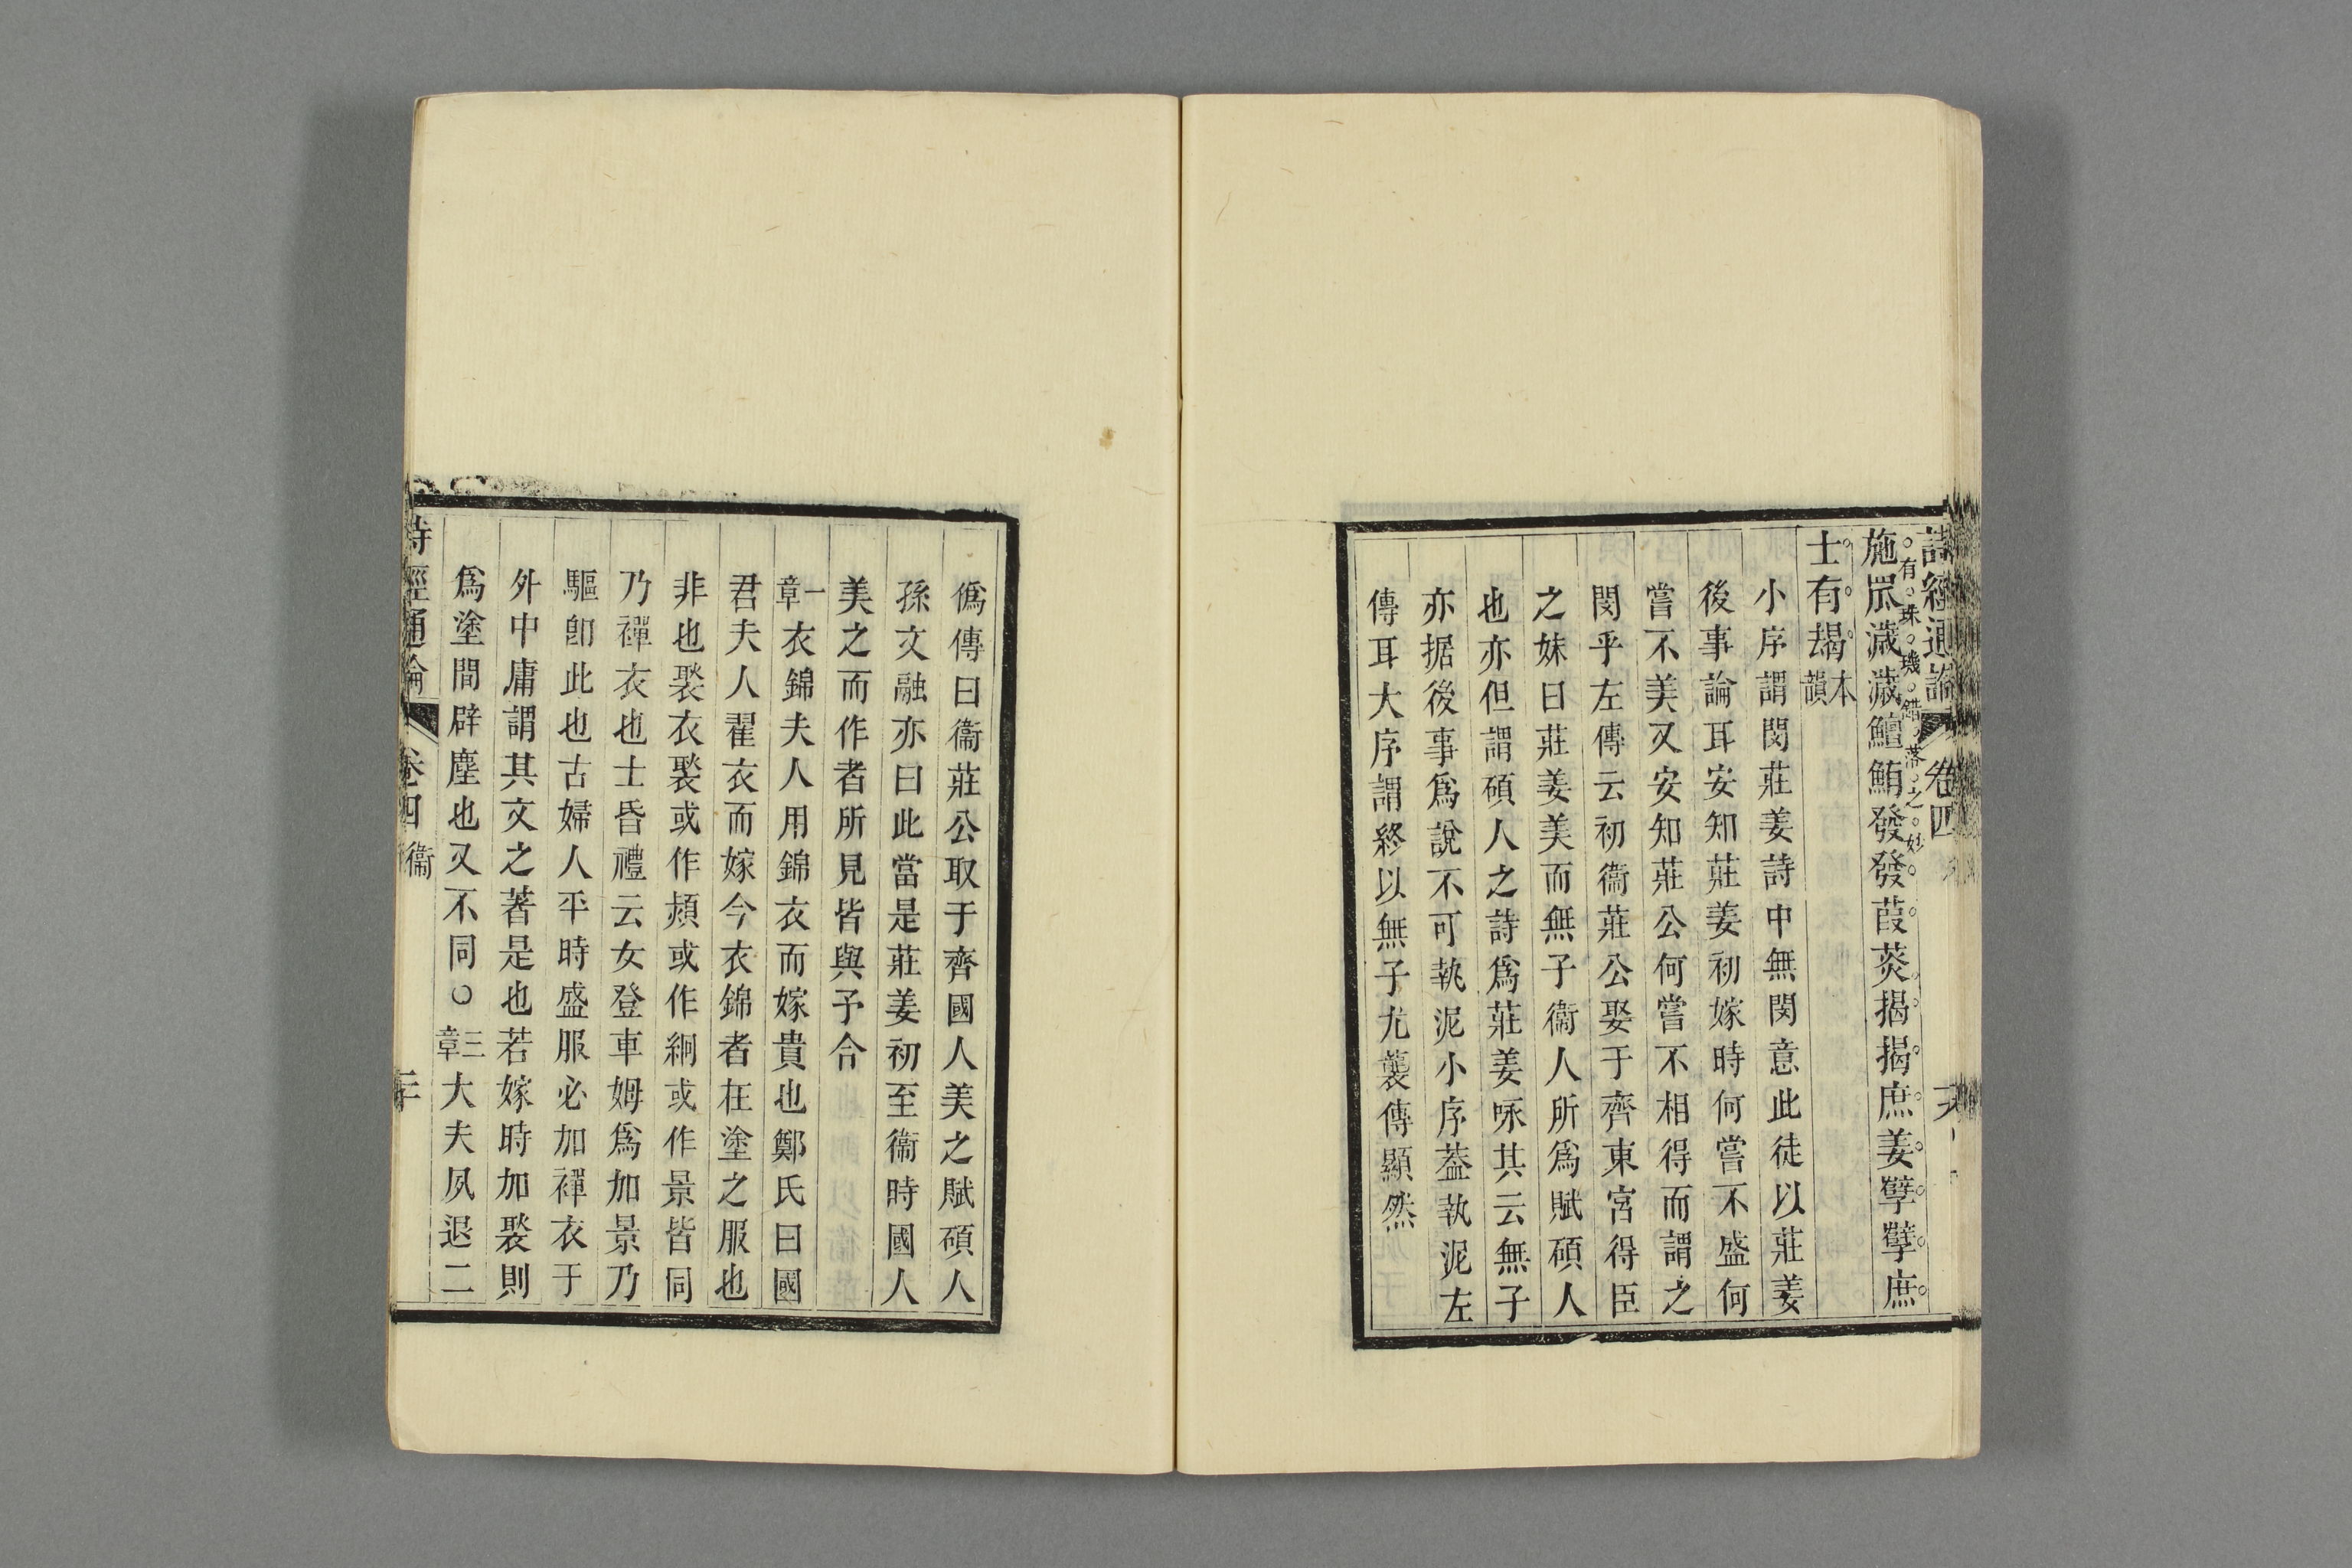 詩經通論 卷四
有珠璣錯落之妙
施罛濊濊鱣鮪發發葭菼揭揭庶姜孽孽庶
士有朅本韻
小序謂閔莊姜詩中無閔意此徒以莊姜
後事論耳安知莊姜初嫁時何嘗不盛何
嘗不美又安知莊公何嘗不相得而謂之
閔乎左傳云初衞莊公娶于齊東宮得臣
之妹曰莊姜美而無子衞人所爲賦碩人
也亦但謂碩人之詩爲莊姜咏其云無子
亦据後事爲說不可執泥小序葢執泥左
傳耳大序謂終以無子尤襲傳顯然
僞傳曰衞莊公取于齊國人美之賦碩人
孫文融亦曰此當是莊姜初至衞時國人
美之而作者所見皆與予合
一章衣錦夫人用錦衣而嫁貴也鄭氏曰國
君夫人翟衣而嫁今衣錦者在塗之服也
非也褧衣褧或作䌹或作絅或作景皆同
乃襌衣也士昏禮云女登車姆爲加景乃
驅卽此也古婦人平時盛服必加襌衣于
外中庸謂其文之著是也若嫁時加褧則
爲塗間辟塵也又不同○三章大夫夙退二
詩經通論 卷四 衞